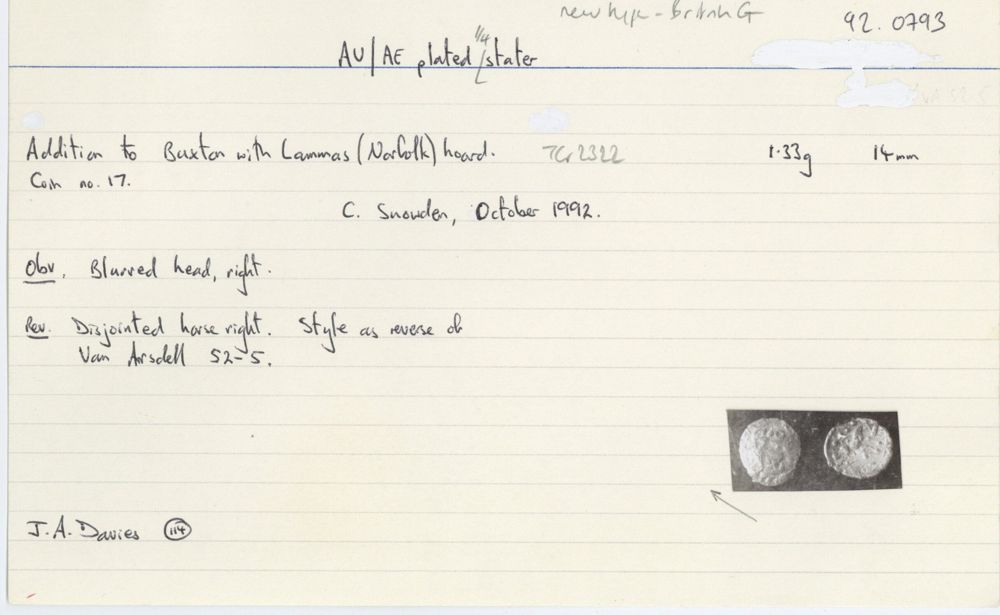 new type - British G
92.0793
AU/AE plated 1/4 stater
VA 52-5
Addition to Buxton with Lammas (Norfolk) hoard. TG 2322 1.33g 14mm
Coin no. 17.
C. Snowden, October 1992.
Obv. Blurred head, right.
Rev. Disjointed horse right. Style as reverse of
Van Arsdell 52-5.
J.A. Davies 114